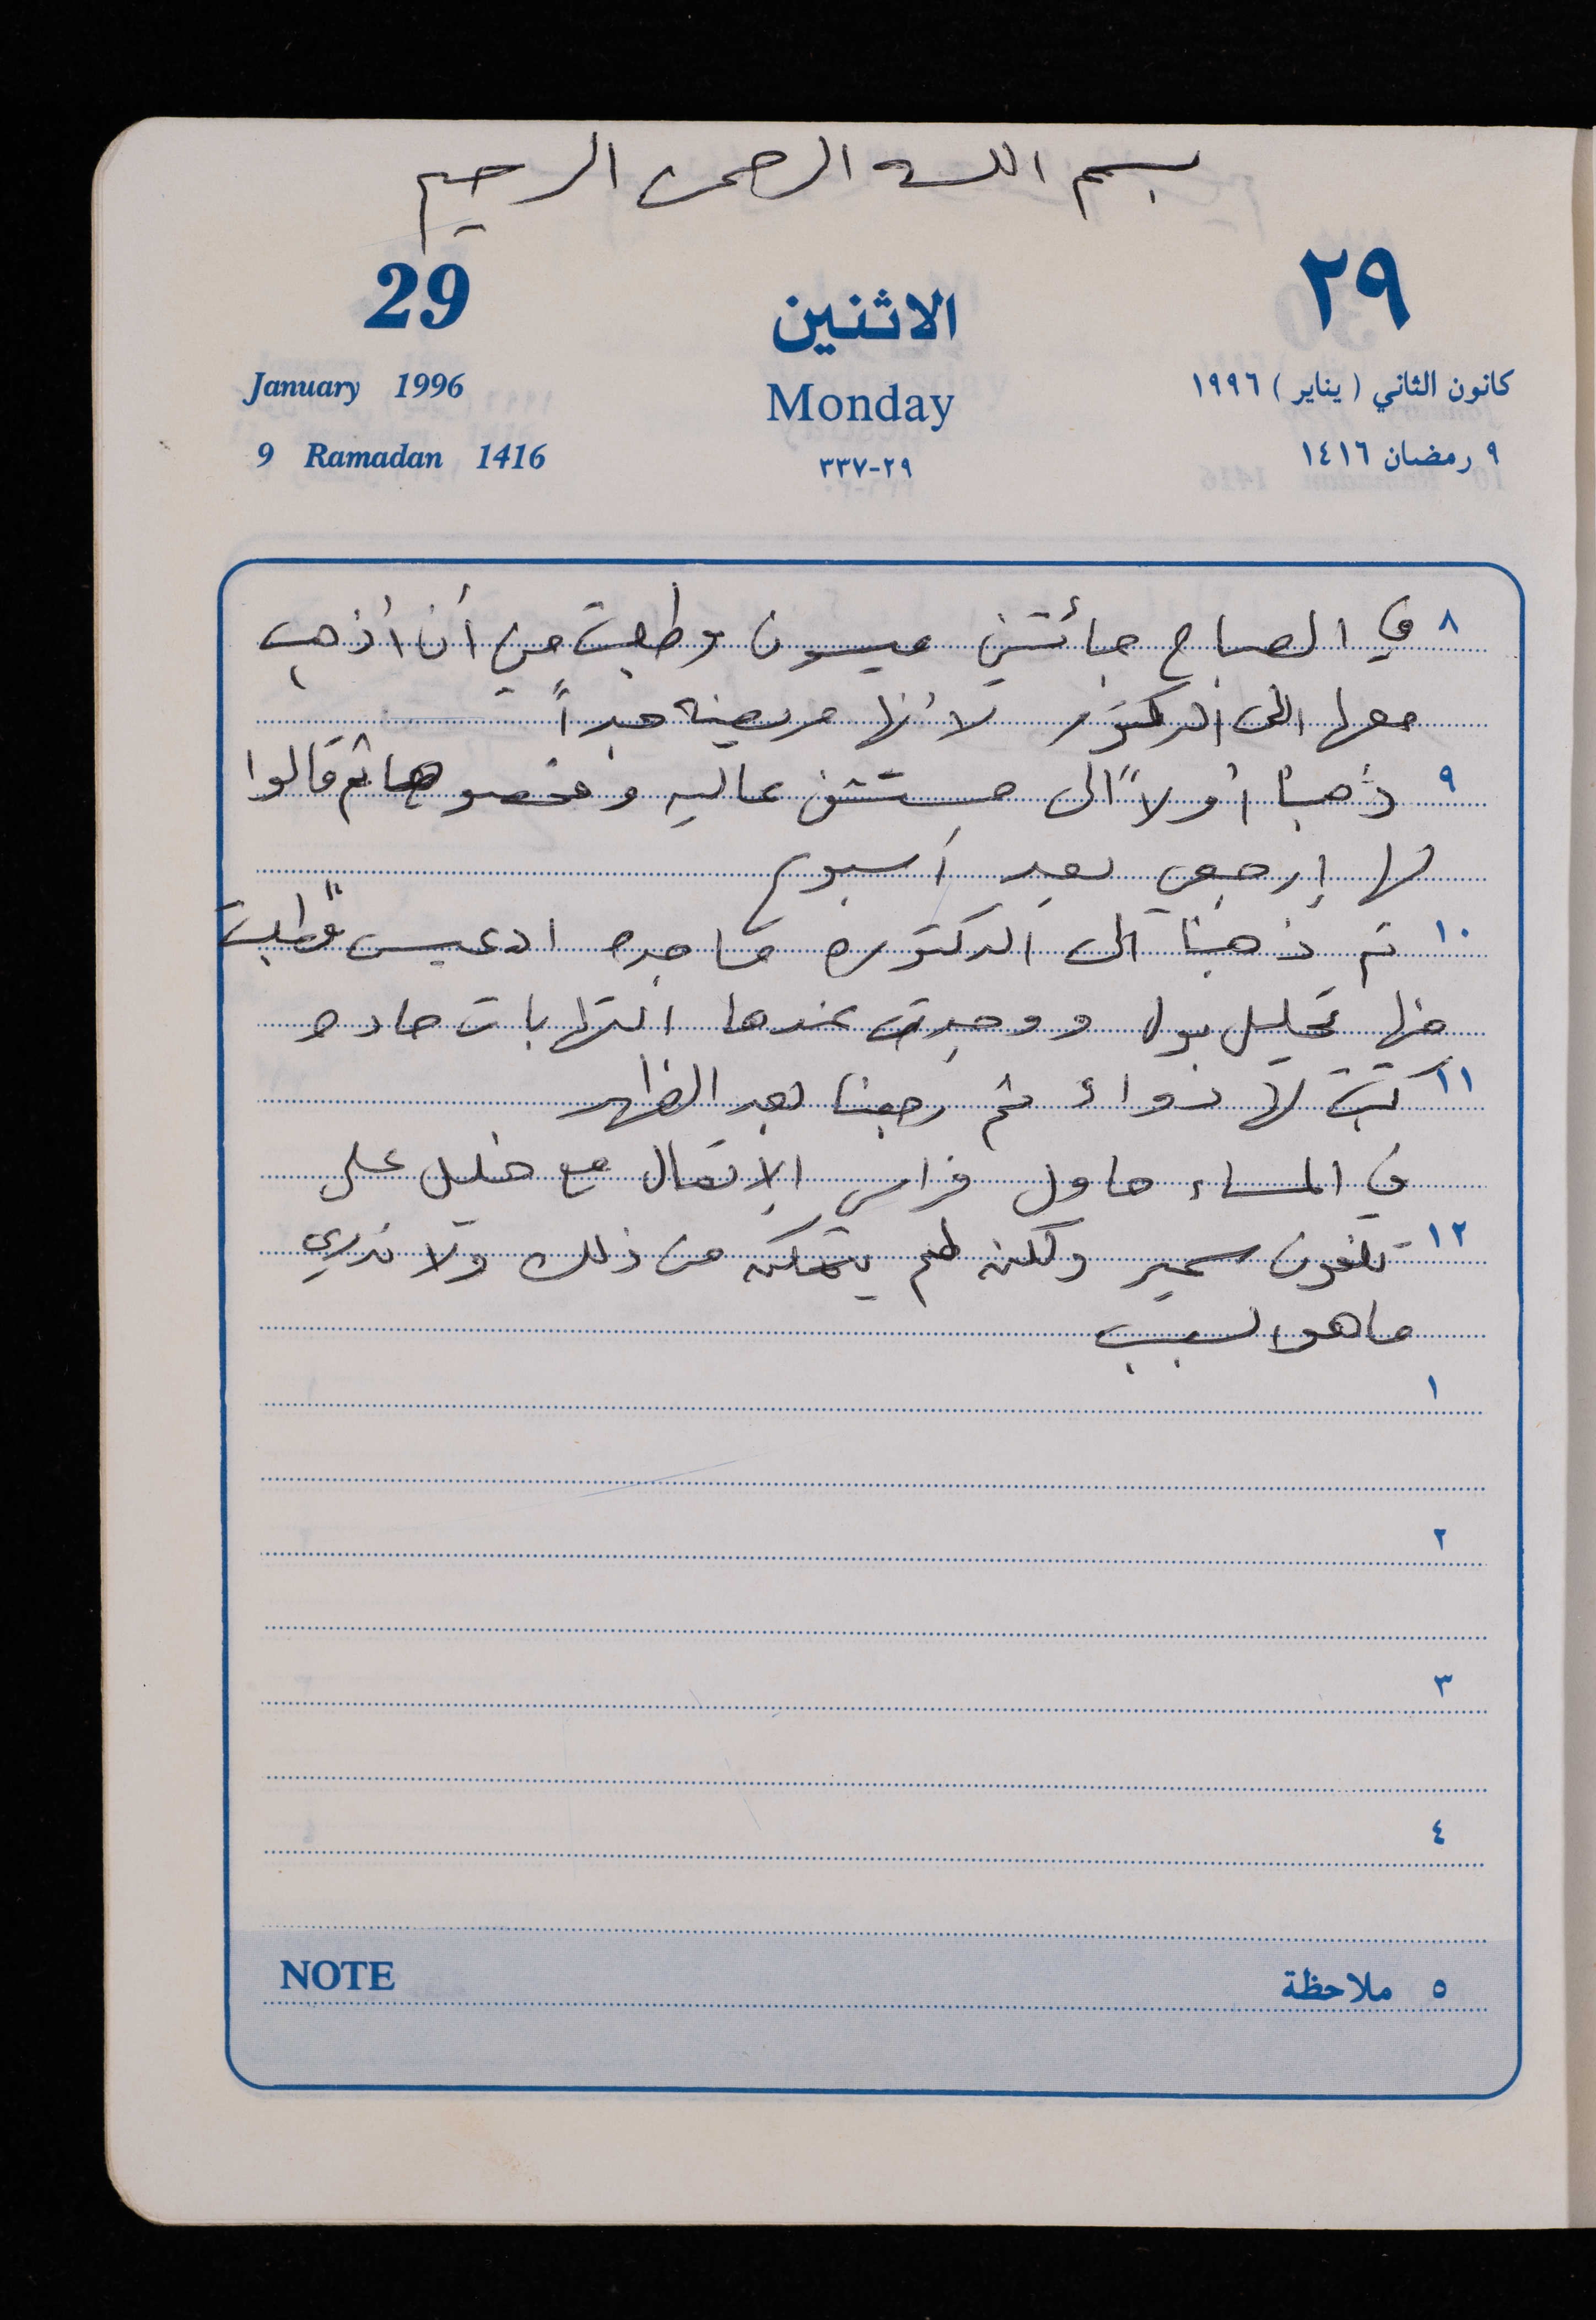 بسم الله الرحمن الرحيم
29 الاثنين ٢٩
January 1996 Monday كانون الثاني ( يناير ) ١٩٩٦
9 Ramadan 1416 ٢٩-٣٣٧ ٩ رمضان ١٤١٦
٨ في الصباح جائتني ميسون وطلبت مني أن أذهب
معها الى الدكتور لأنها مريضه جداً
٩ ذهبنا أولاً الى مستشفى عاليه وفحصوها ثم قالوا
لها إرجعي بعد أسبوع
١٠ ثم ذهبنا الى الدكتوره ماجده ادعيس وطلبت
منها تحليل بول ووجدت عندها التهابات حاده
١١ كتبت لها دواء ثم رجعنا بعد الظهر
في المساء حاول فراس الإتصال مع خليل على
١٢ تلفون سمير ولكنه لم يتمكن من ذلك ولا ندري
ما هو السبب
١
٢
٣
٤
NOTE ٥ ملاحظة